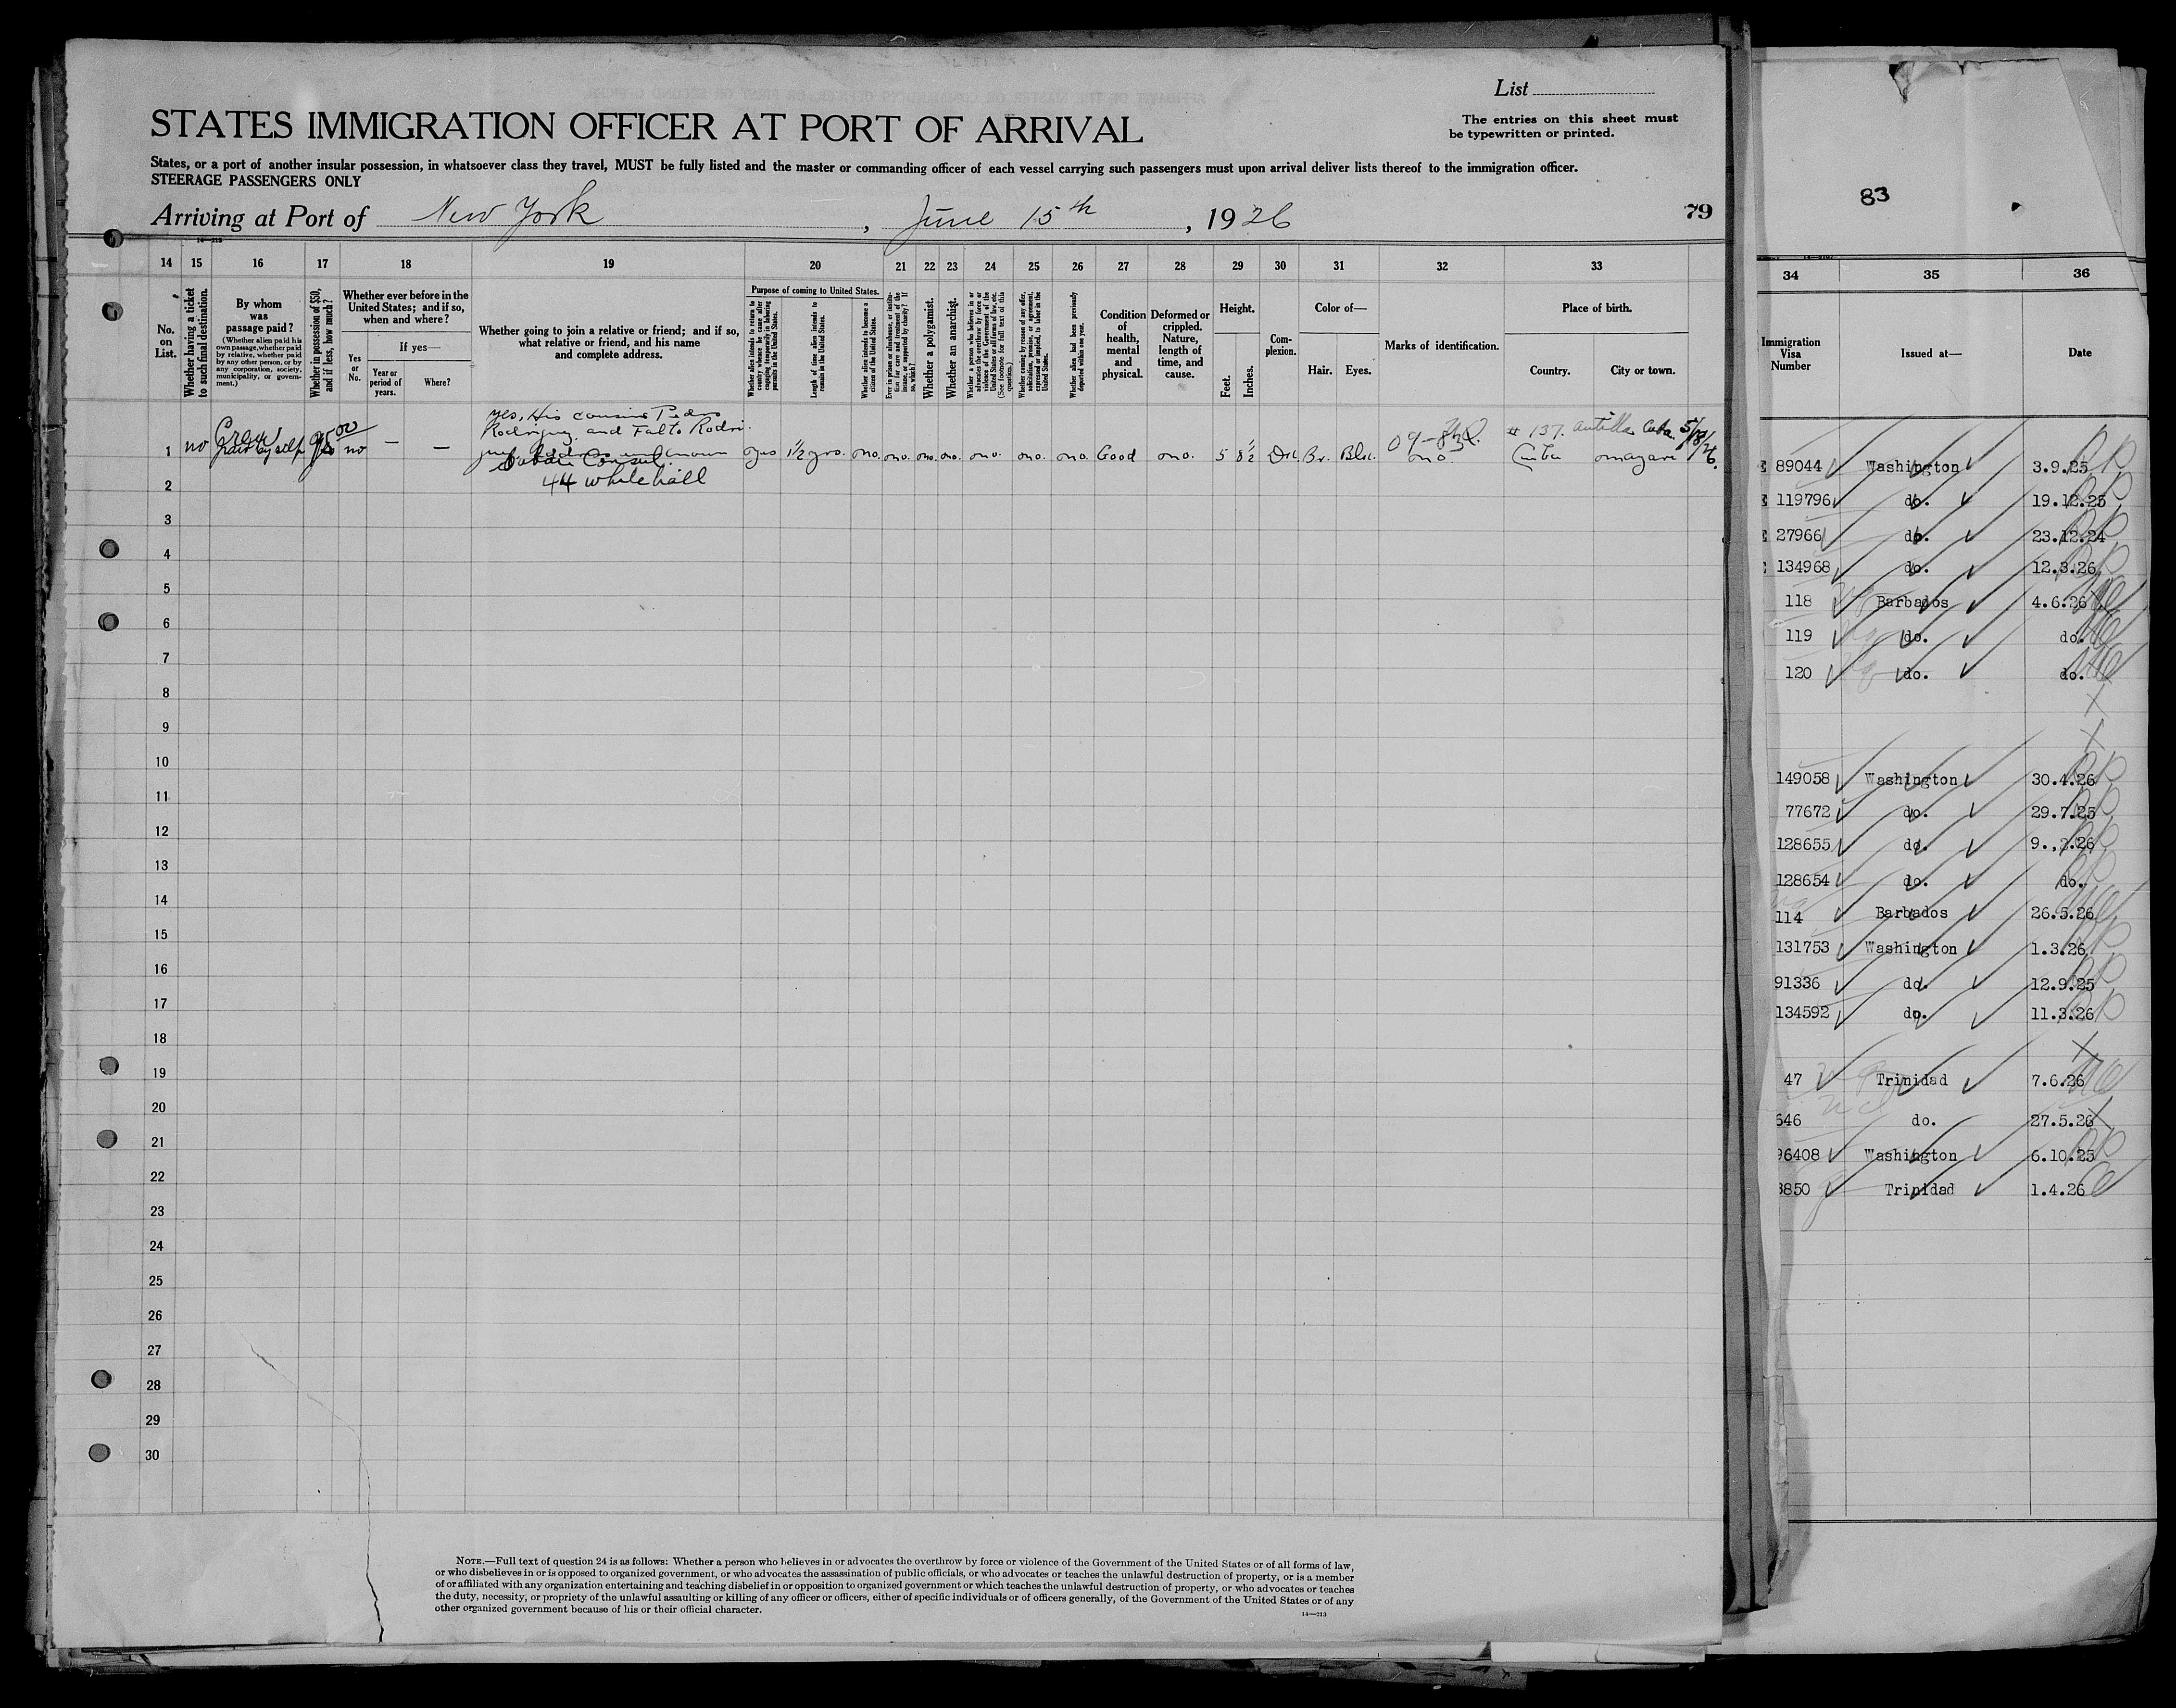 List
The entries on this sheet must
be typewritten or printed.
STATES IMMIGRATION OFFICER AT PORT OF ARRIVAL
States, or a port of another insular possession, in whatsoever class they travel, MUST be fully listed and the master or commanding officer of each vessel carrying such passengers must upon arrival deliver lists thereof to the immigration officer.
STEERAGE PASSENGERS ONLY
Arriving at Port of New York, June 15th, 1926
79
14 15 16 17 18 19 20 21 22 23 24 25 26 27 28 29 30 31 32 33
No. on List.
Whether having a ticket to such final destination.
By whom was passage paid?
(Whether alien paid his own passage, whether paid by relative, whether paid by any other person, or by any corporation, society, municipality, or government.)
Whether in possession of $50, and if less, how much?
Whether ever before in the United States; and if so, when and where?
Yes or No.
If yes—
Year or period of years.
Where?
Whether going to join a relative or friend; and if so, what relative or friend, and his name and complete address.
Purpose of coming to United States.
Whether alien intends to return to country whence he came after engaging temporarily in laboring pursuits in the United States.
Length of time alien intends to remain in the United States.
Whether alien intends to become a citizen of the United States.
Ever in prison or almshouse, or institution for care and treatment of the insane, or supported by charity? If so, which?
Whether a polygamist.
Whether an anarchist.
Whether a person who believes in or advocates the overthrow by force or violence of the Government of the United States or all forms of law, etc. (See footnote for full text of this question.)
Whether coming by reason of any offer, solicitation, promise, or agreement, expressed or implied, to labor in the United States.
Whether alien had been previously deported within one year.
Condition of health, mental and physical.
Deformed or crippled. Nature, length of time, and cause.
Height.
Feet. Inches.
Complexion.
Color of—
Hair. Eyes.
Marks of identification.
Place of birth.
Country. City or town.
yes, His cousins Pedro
Rodriguez and
# 137. Antilla Cuba. 5/18/26.
1 no paid by self no — — yes 1½ yrs. no. no. no. no. no. no. no. Good no. 5 8½ Dk. Br. Blk. no. Cuba omagari
Cuban Consul
44 whitehall
2
3
4
5
6
7
8
9
10
11
12
13
14
15
16
17
18
19
20
21
22
23
24
25
26
27
28
29
30
NOTE.—Full text of question 24 is as follows: Whether a person who believes in or advocates the overthrow by force or violence of the Government of the United States or of all forms of law,
or who disbelieves in or is opposed to organized government, or who advocates the assassination of public officials, or who advocates or teaches the unlawful destruction of property, or is a member
of or affiliated with any organization entertaining and teaching disbelief in or opposition to organized government or which teaches the unlawful destruction of property, or who advocates or teaches
the duty, necessity, or propriety of the unlawful assaulting or killing of any officer or officers, either of specific individuals or of officers generally, of the Government of the United States or of any
other organized government because of his or their official character.
14—213
83
34 35 36
Immigration Visa Number
Issued at—
Date
89044 Washington 3.9.25
119796 do. 19.12.25
27966 do. 23.12.24
134968 do. 12.3.26
118 Barbados 4.6.26
119 do. do.
120 do. do.
149058 Washington 30.4.26
77672 do. 29.7.25
128655 do. 9.,2.26
128654 do. do.
114 Barbados 26.5.26
131753 Washington 1.3.26
91336 do. 12.9.25
134592 do. 11.3.26
47 Trinidad 7.6.26
646 do. 27.5.26
96408 Washington 6.10.25
3850 Trinidad 1.4.26